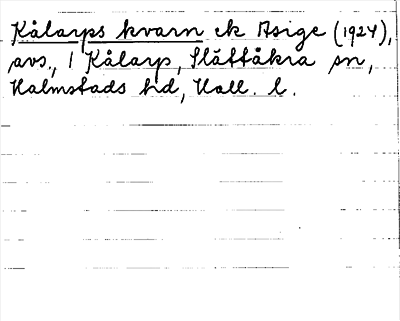 Kålarps kvarn ek Asige (1924),
avs., 1 Kålarp, Slättåkra sn,
Halmstads hd, Hall. l.